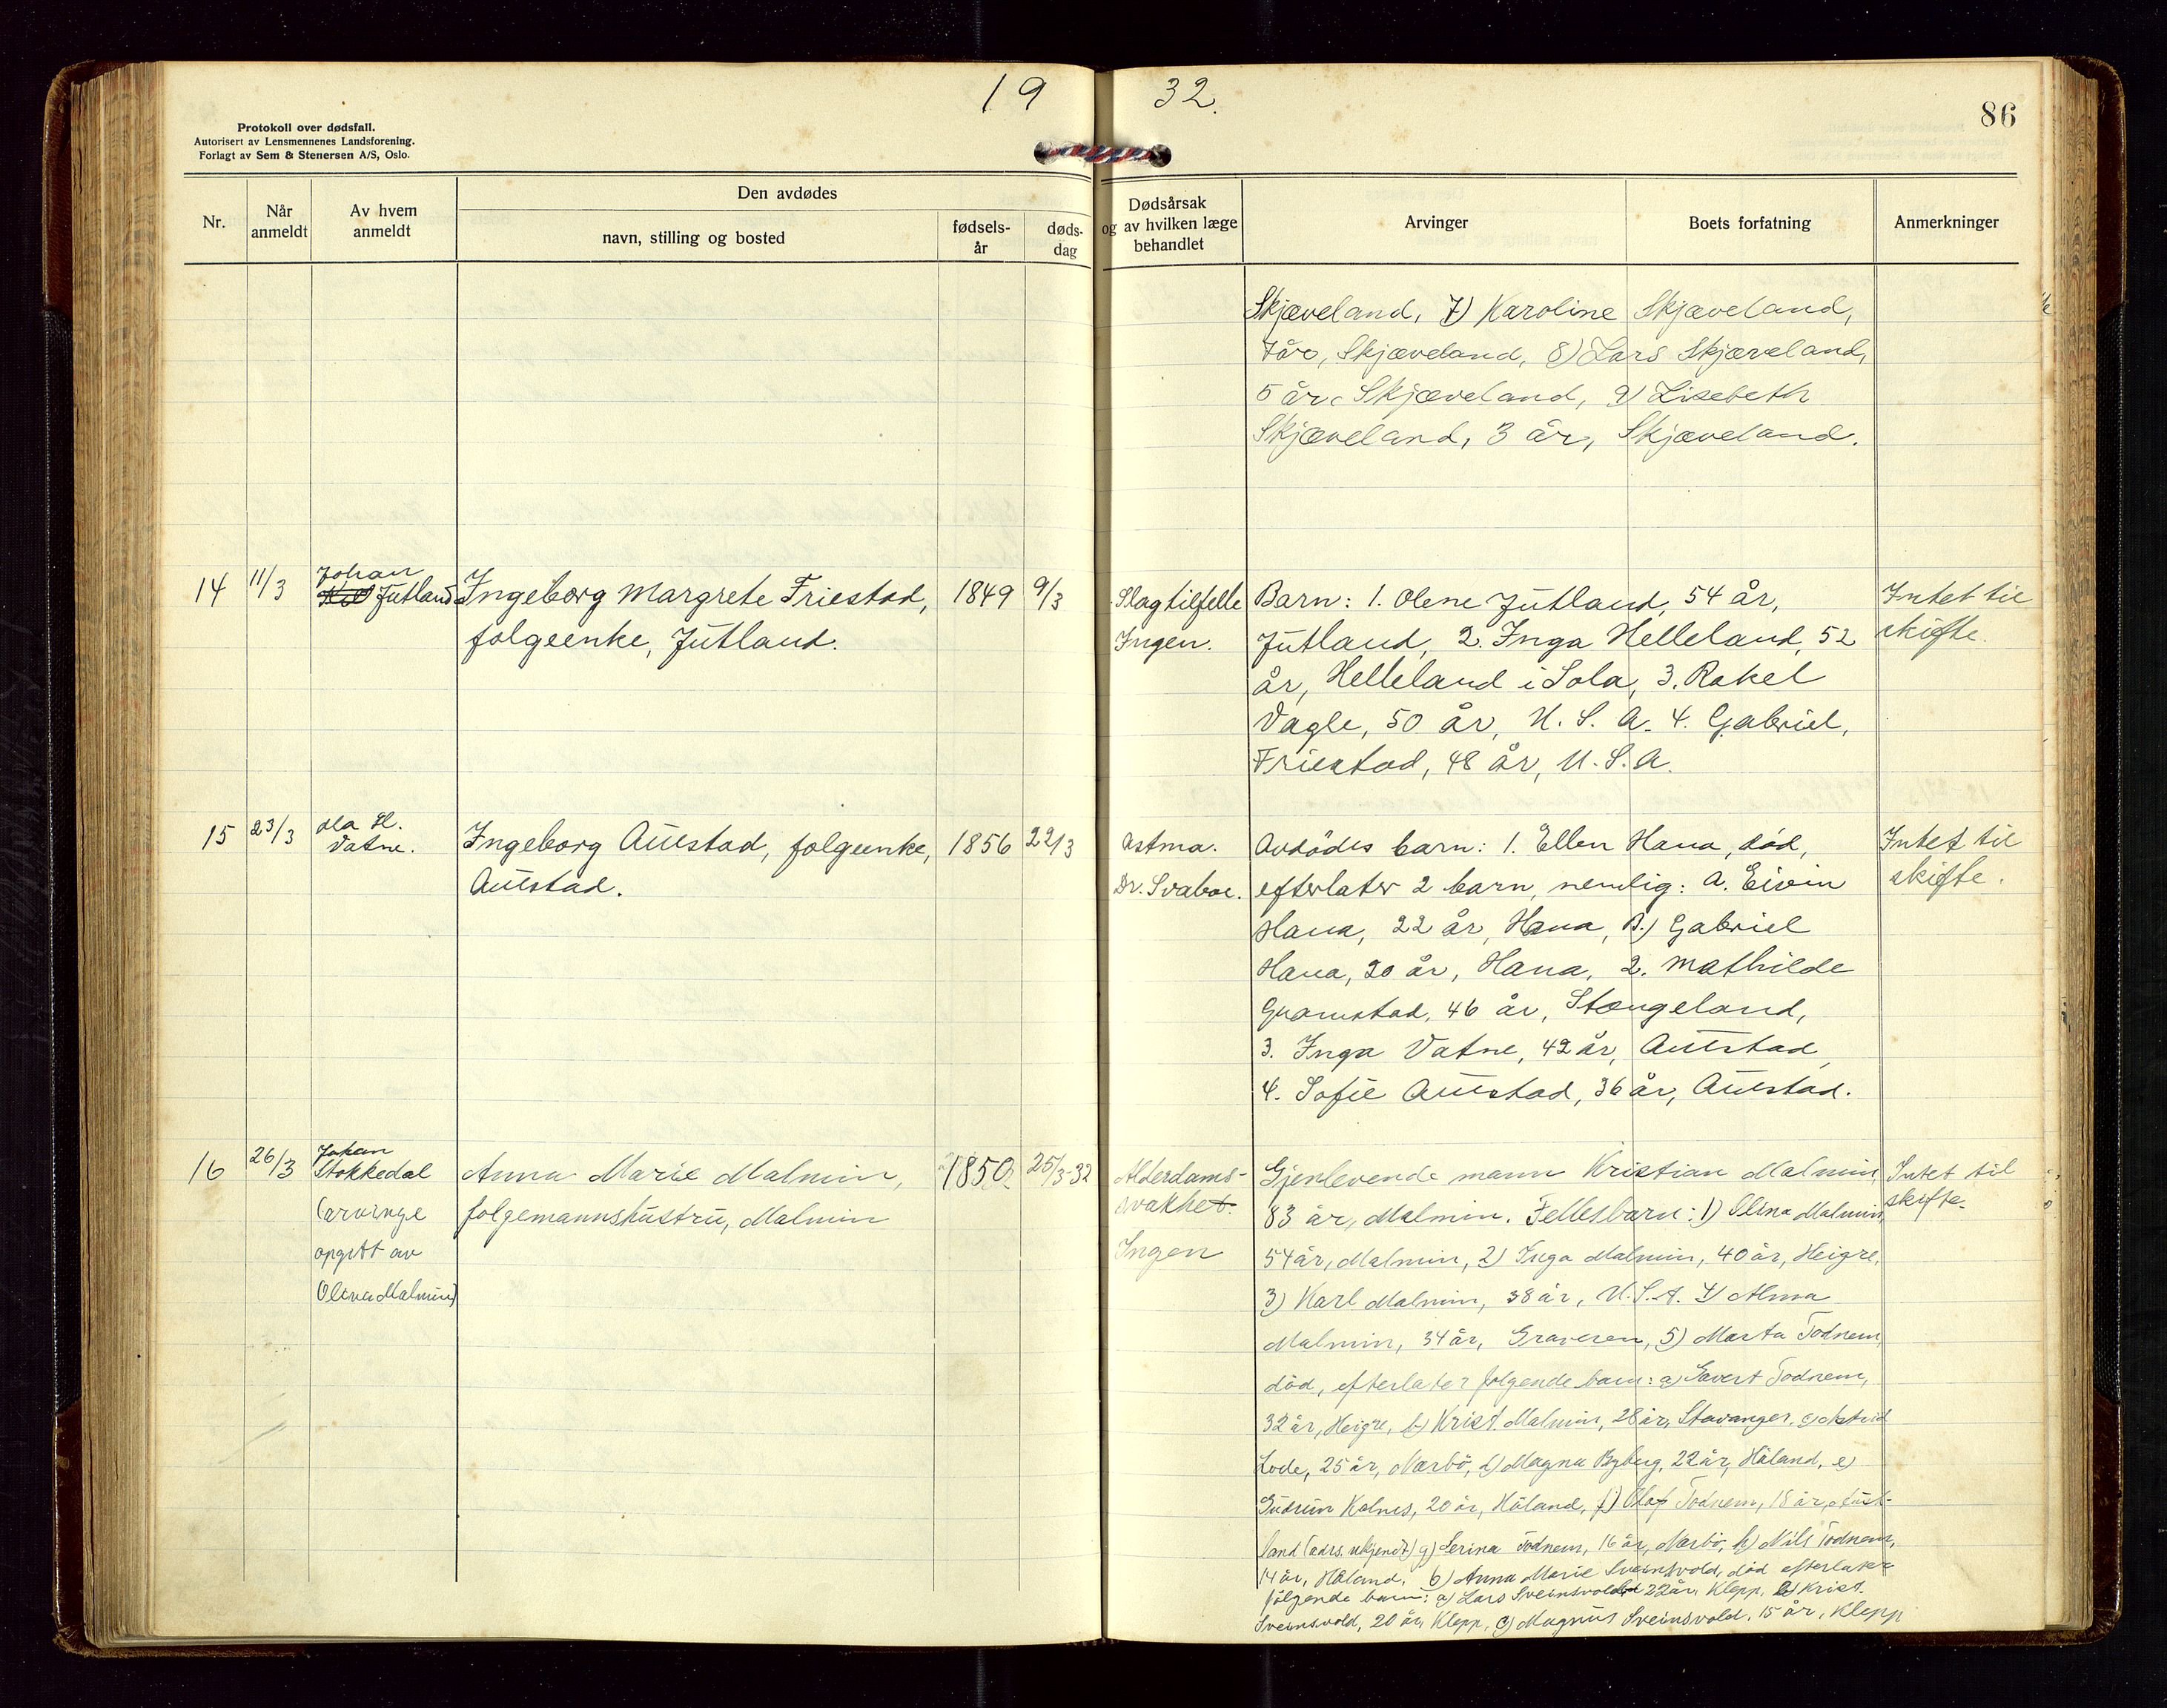 19 32.
86
Protokoll over dødsfall.
Autorisert av Lensmennenes Landsforening.
Forlagt av Sem & Stenersen A/S, Oslo.
Nr.
Når anmeldt
Av hvem anmeldt
Den avdødes
navn, stilling og bosted
fødsels-år
døds-dag
Dødsårsak og av hvilken læge behandlet
Arvinger
Boets forfatning
Anmerkninger
Skjæveland, 7) Karoline Skjæveland,
7 år, Skjæveland, 8) Lars Skjæveland,
5 år, Skjæveland, 9) Lisebeth
Skjæveland, 3 år, Skjæveland.
14
11/3
Johan
Jutland
Ingeborg Margrete Friestad,
folgeenke, Jutland.
1849
9/3
Slagtilfelle
Ingen.
Barn: 1. Olene Jutland, 54 år,
Jutland, 2. Inga Helleland, 52
år, Helleland i Sola, 3. Rakel
Vagle, 50 år, U.S.A. 4. Gabriel,
Friestad, 48 år, U.S.A.
Intet til
skifte.
15
23/3
Ola H.
Vatne.
Ingeborg Auestad, folgeenke,
Auestad.
1856
22/3
Astma.
Dr. Svaboe.
Avdødes barn: 1. Ellen Hana, død,
efterlater 2 barn, nemlig: A. Eivin
Hana, 22 år, Hana, B.) Gabriel
Hana, 20 år, Hana, 2. Mathilde
Gramstad, 46 år, Stangeland,
3. Inga Vatne, 42 år, Auestad,
4. Sofie Auestad, 36 år, Auestad.
Intet til
skifte.
16
26/3
Johan
Stokkedal
(arvinge
opgitt av
Olina Malmin)
Anna Marie Malmin,
folgemannshustru, Malmin
1850
25/3-32
Alderdoms-
svakhet.
Ingen
Gjenlevende mann Kristian Malmin,
83 år, Malmin. Fellesbarn: 1) Olina Malmin,
54 år, Malmin, 2) Inga Malmin, 40 år, Heigre,
3) Karl Malmin, 38 år, U.S.A. 4) Alma
Malmin, 34 år, Graveren, 5) Marta Todnem,
død, efterlater følgende barn: a) Savert Todnem,
32 år, Heigre, b) Krist. Malmin, 28 år, Stavanger, c) Astrid
Lode, 25 år, Nærbø, d) Magna Byberg, 22 år, Håland, e)
Gudrun Kolnes, 20 år, Håland, f) Olaf Todnem, 18 år, Aust-
land (adrs. ukjendt) g) Serina Todnem, 16 år, Nærbø, h) Nils Todnem,
14 år, Håland. 6) Anna Marie Sveinsvold, død efterlater
følgende barn: a) Lars Sveinsvold 22 år, Klepp, b) Krist.
Sveinsvold, 20 år, Klepp, c) Magnus Sveinsvold, 15 år, Klepp
Intet til
skifte.